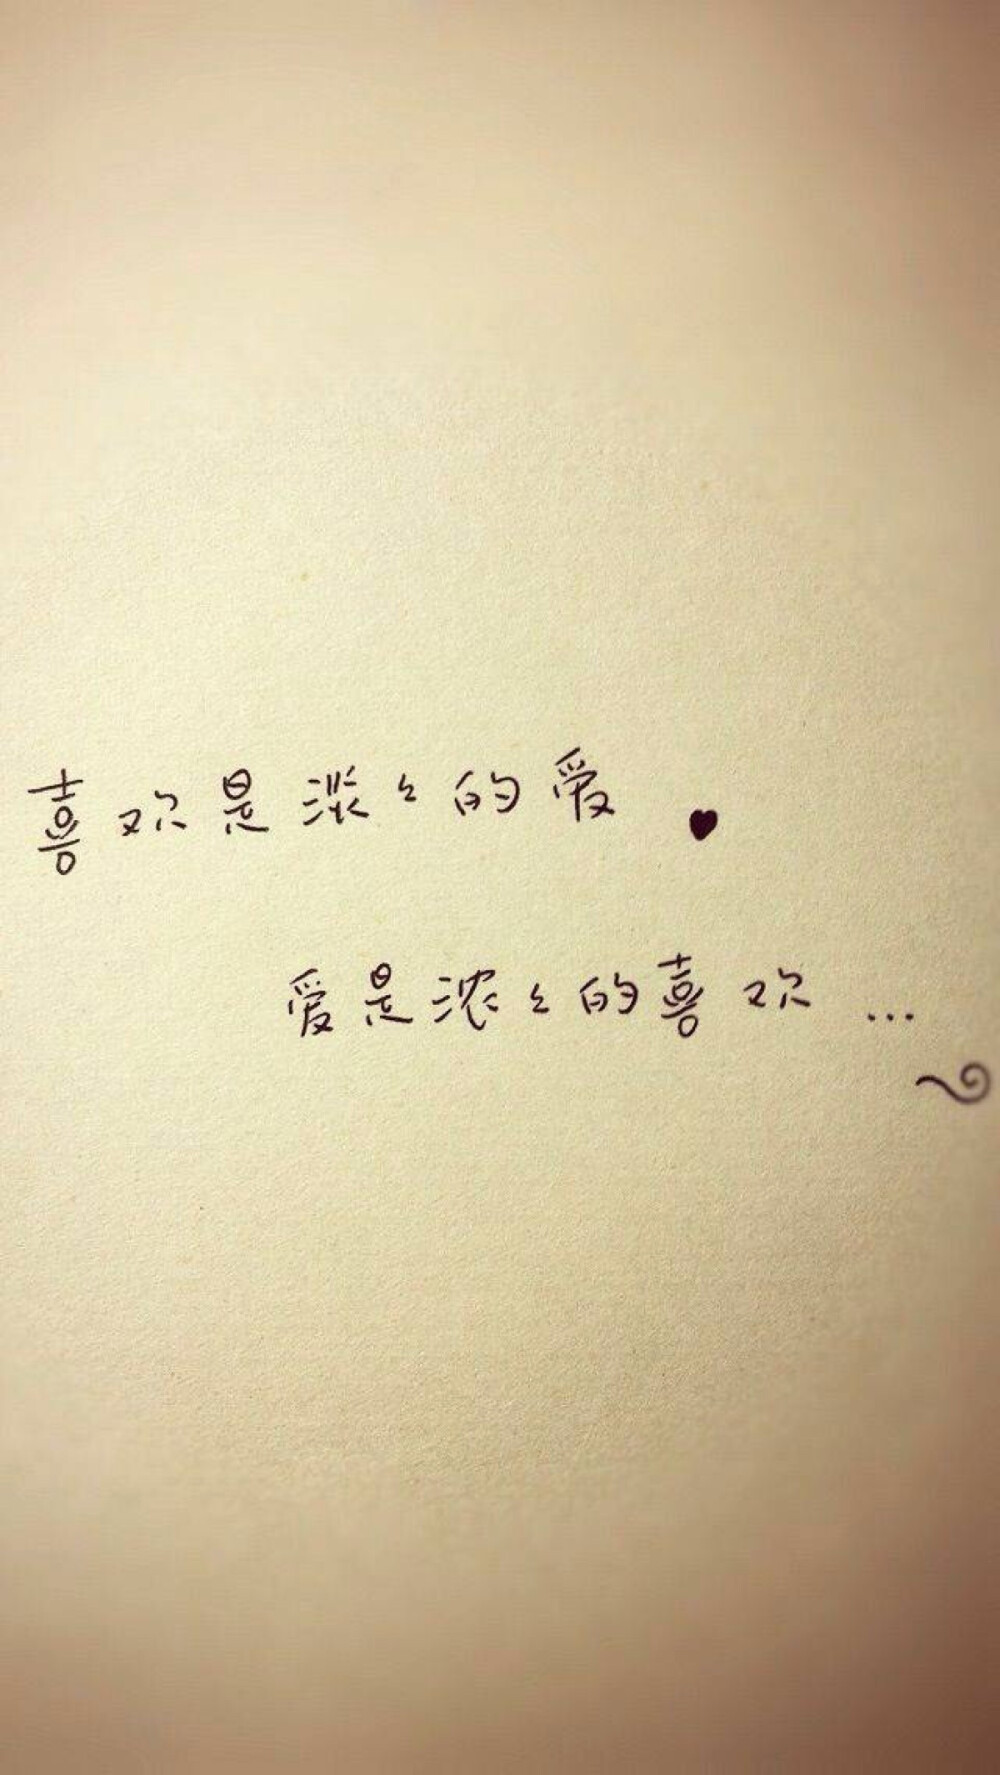 喜欢是淡々的爱 ♥
爱是浓々的喜欢 ...